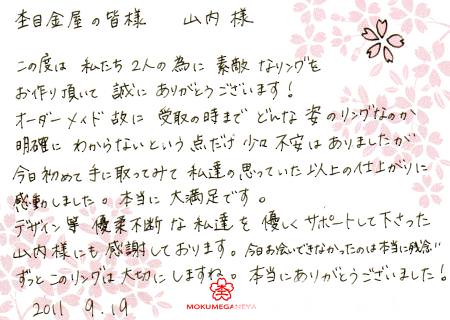 杢目金屋の皆様　山内様
この度は 私たち2人の為に 素敵なリングを
お作り頂いて 誠に ありがとうございます！
オーダーメイド故に 受取の時まで どんな姿のリングなのか
明確に わからないという 点だけ 少々 不安はありましたが
今日初めて手に取ってみて 私達の思っていた以上の仕上がりに
感動しました。本当に 大満足です。
デザイン等 優柔不断な私達を 優しくサポートして下さった
山内様にも感謝しております。今日お会いできなかったのは本当に残念！！
ずっとこのリングは大切にしますね。本当にありがとうございました！
2011 9.19
MOKUMEGANEYA